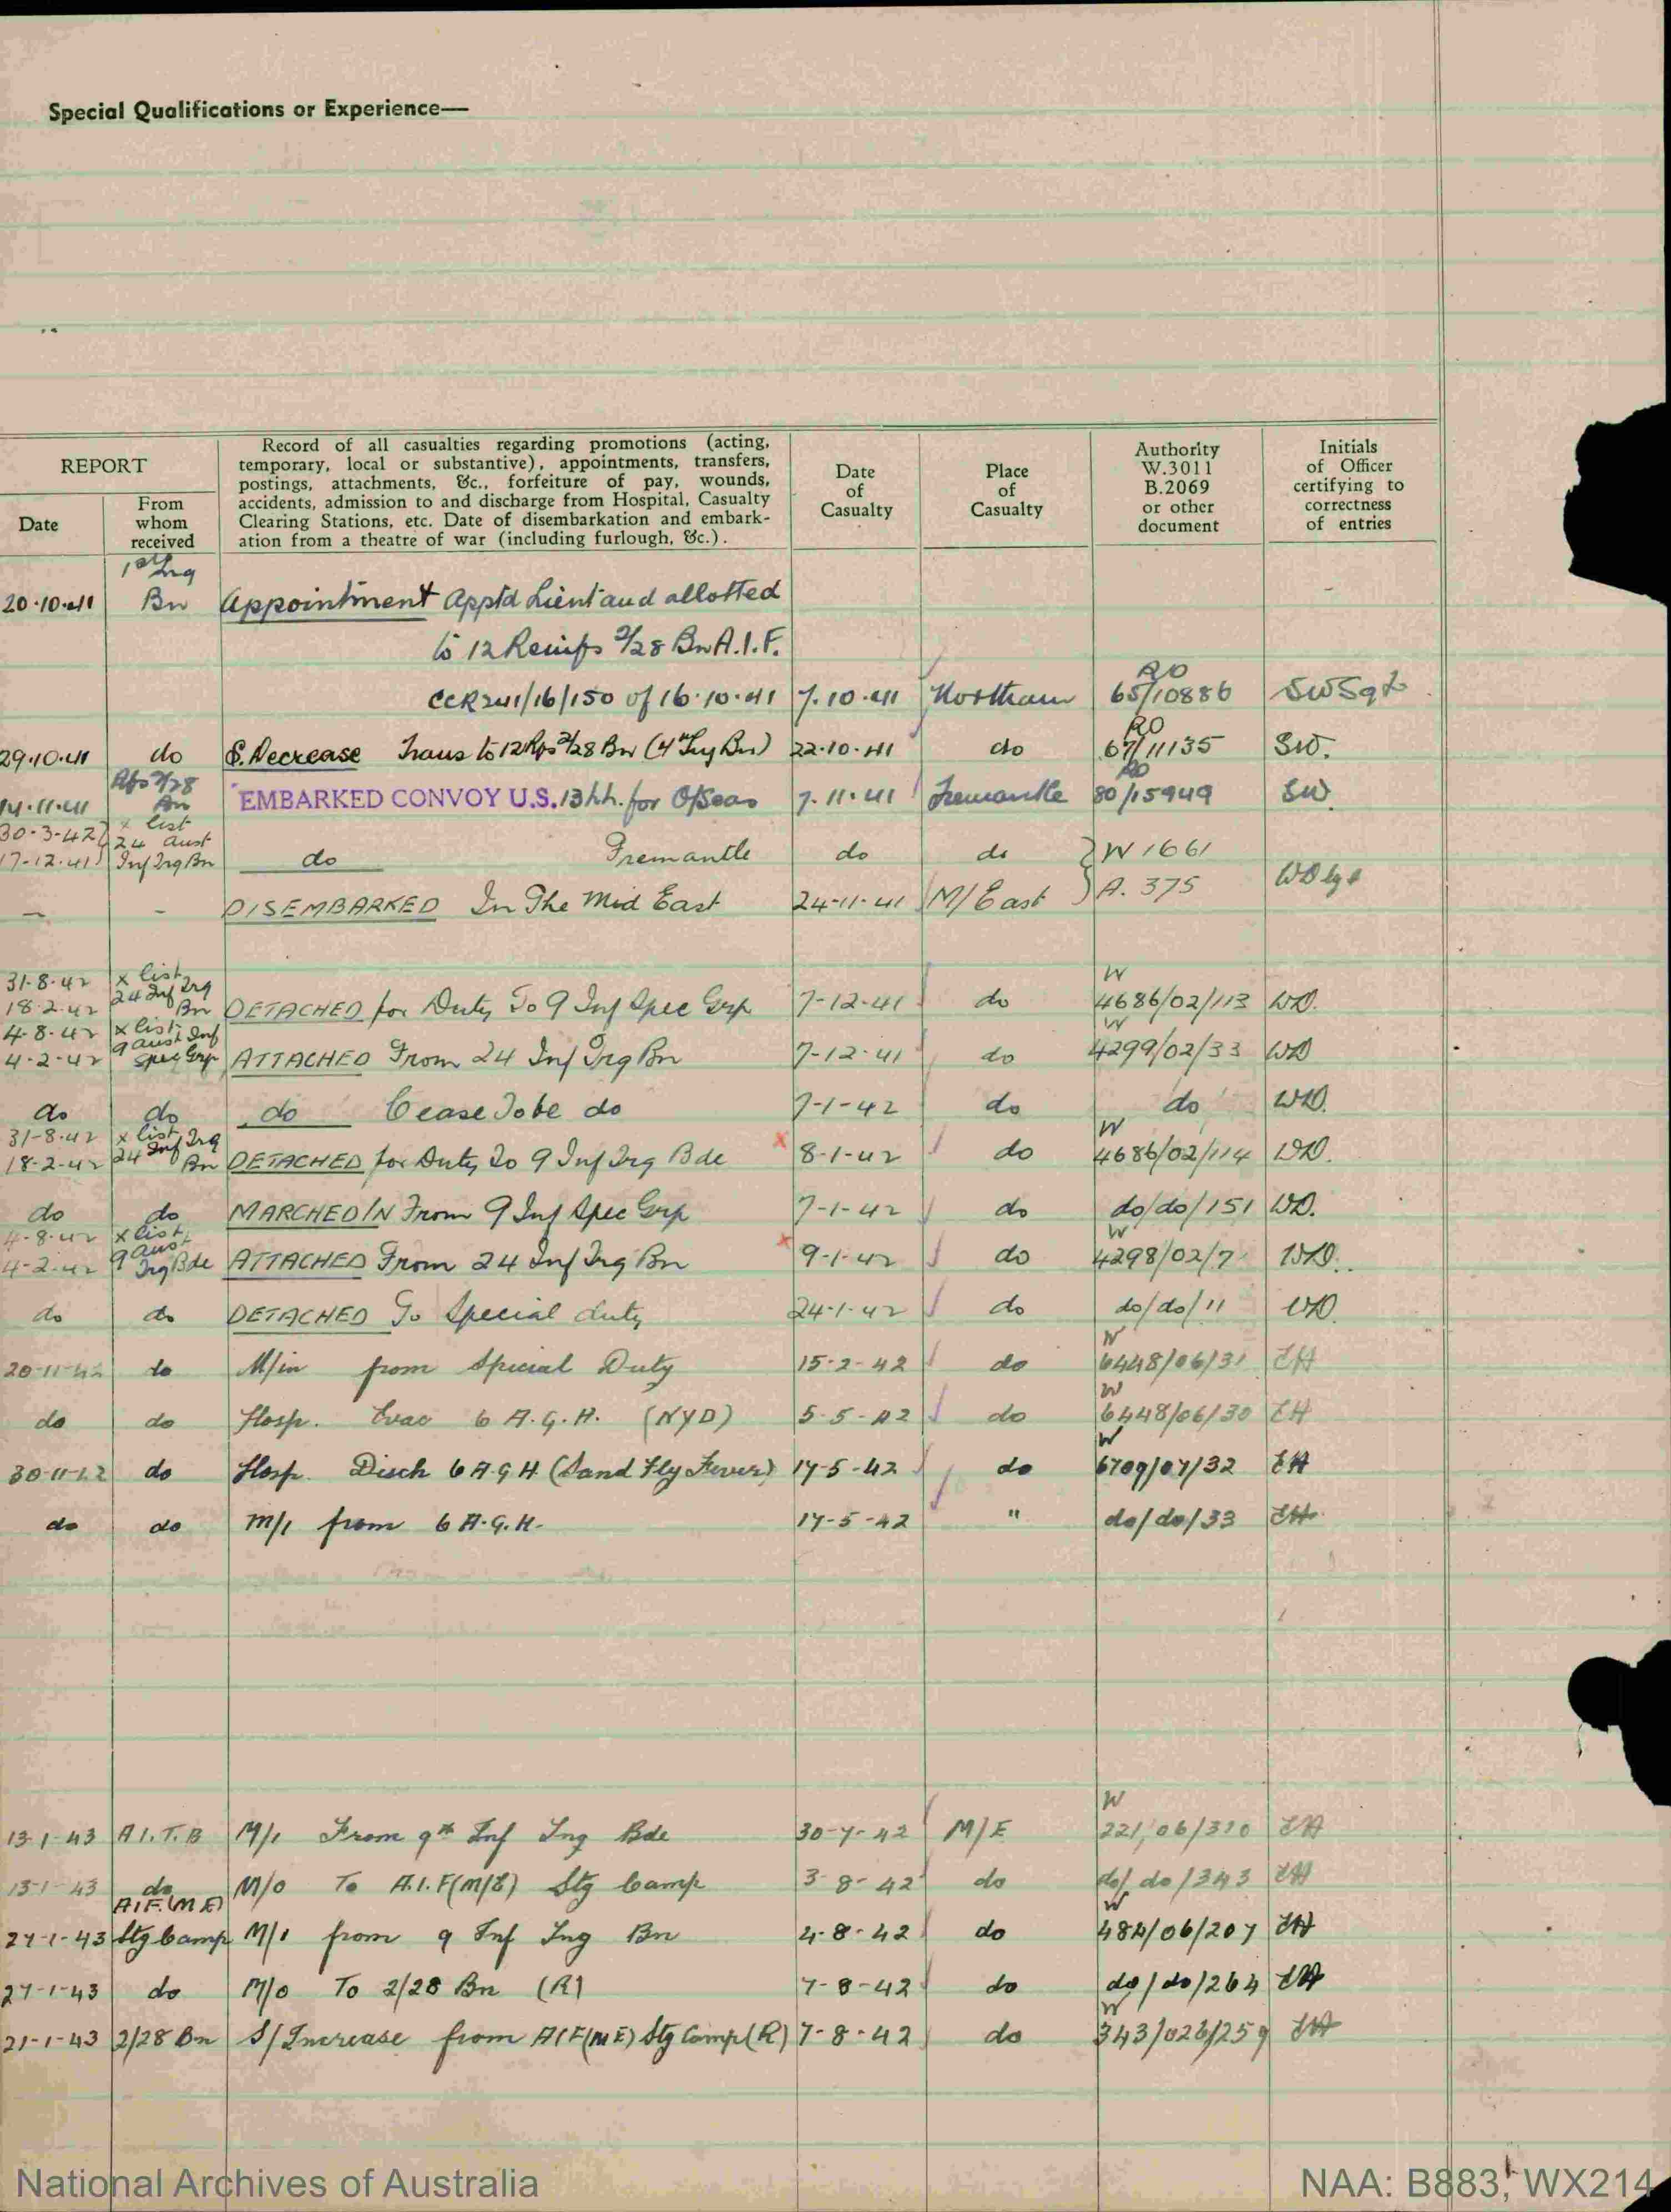 Special Qualifications or Experience—
REPORT
Date
From whom received
Record of all casualties regarding promotions (acting,
temporary, local or substantive), appointments, transfers,
postings, attachments, &c., forfeiture of pay, wounds,
accidents, admission to and discharge from Hospital, Casualty
Clearing Stations, etc. Date of disembarkation and embark-
ation from a theatre of war (including furlough, &c.).
Date of Casualty
Place of Casualty
Authority W.3011 B.2069 or other document
Initials of Officer certifying to correctness of entries
1st Trg
20·10·41 Bn Appointment Apptd Lieut and allotted
to 12 Reinfs 2/28 Bn A.I.F.
RO
CCR241/16/150 of 16·10·41 7·10·41 Northam 65/10886
RO
29·10·41 do S. Decrease Trans to 12 Rfs 2/28 Bn (4th Trg Bn) 22·10·41 do 67/11135 SW.
Rfs 2/28 RO
14·11·41 Bn EMBARKED CONVOY U.S. 13 for O/Seas 7·11·41 Fremantle 80/15949 SW
30-3-42 x list
24 Aust
17-12-41 Inf Trg Bn do Fremantle do do W 1661
— - DISEMBARKED In The Mid East 24-11-41 M/East A. 375
31-8-42 x list W
18-2-42 24 Inf Trg Bn DETACHED for Duty To 9 Inf Spec Grp 7-12-41 do 4686/02/113 WD.
4-8-42 x list W
4-2-42 9 Aust Inf Spec Grp ATTACHED From 24 Inf Trg Bn 7-12-41 do 4299/02/33 WD
do do do Cease To be do 7-1-42 do do WD.
31-8-42 x list W
18-2-42 24 Inf Trg Bn DETACHED for Duty To 9 Inf Trg Bde x 8-1-42 do 4686/02/114 WD.
do do MARCHED IN From 9 Inf Spec Grp 7-1-42 do do/do/151 WD.
4-8-42 x list W
4-2-42 9 Aust Trg Bde ATTACHED From 24 Inf Trg Bn x 9-1-42 do 4298/02/7 WD.
do do DETACHED To Special duty 24-1-42 do do/do/11 WD.
W
20-11-42 do M/in from Special Duty 15-2-42 do 6448/06/31 EH
W
do do Hosp. Evac 6 A.G.H. (NYD) 5-5-42 do 6448/06/30 EH
W
30-11-42 do Hosp. Disch 6 A.G.H. (Sand Fly Fever) 17-5-42 do 6709/07/32 EH
do do m/i from 6 A.G.H. 17-5-42 " do/do/33 EH
W
13-1-43 A I.T.B M/i From 9th Inf Tng Bde 30-7-42 M/E 221/06/320 EH
13-1-43 do M/o To A.I.F(M/E) Stg Camp 3-8-42 do do/do/343 EH
A.I.F.(M E) W
27-1-43 Stg Camp M/i from 9 Inf Tng Bn 4-8-42 do 484/06/207 EH
27-1-43 do M/o To 2/28 Bn (R) 7-8-42 do do/do/264 EH
W
21-1-43 2/28 Bn S/Increase from AIF(ME) Stg Camp (R) 7-8-42 do 343/026/259 EH
National Archives of Australia
NAA: B883, WX214